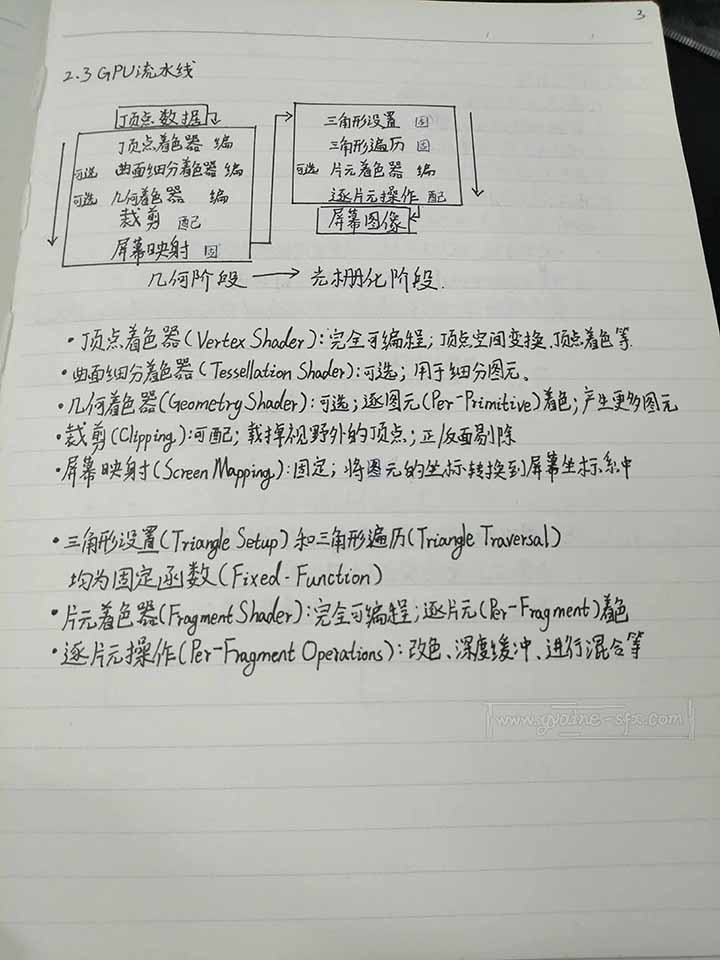 3
2.3 GPU流水线
顶点数据
顶点着色器 编
可选 曲面细分着色器 编
可选 几何着色器 编
裁剪 配
屏幕映射 固
三角形设置 固
三角形遍历 固
可选 片元着色器 编
逐片元操作 配
屏幕图像
几何阶段 → 光栅化阶段.
• 顶点着色器(Vertex Shader):完全可编程;顶点空间变换、顶点着色等.
• 曲面细分着色器(Tessellation Shader):可选;用于细分图元、
• 几何着色器(Geometry Shader):可选;逐图元(Per-Primitive)着色;产生更多图元
• 裁剪(Clipping):可配;裁掉视野外的顶点;正/反面剔除
• 屏幕映射(Screen Mapping):固定;将图元的坐标转换到屏幕坐标系中
• 三角形设置(Triangle Setup)和三角形遍历(Triangle Traversal)
均为固定函数(Fixed-Function)
• 片元着色器(Fragment Shader):完全可编程;逐片元(Per-Fragment)着色
• 逐片元操作(Per-Fragment Operations):改色、深度缓冲、进行混合等